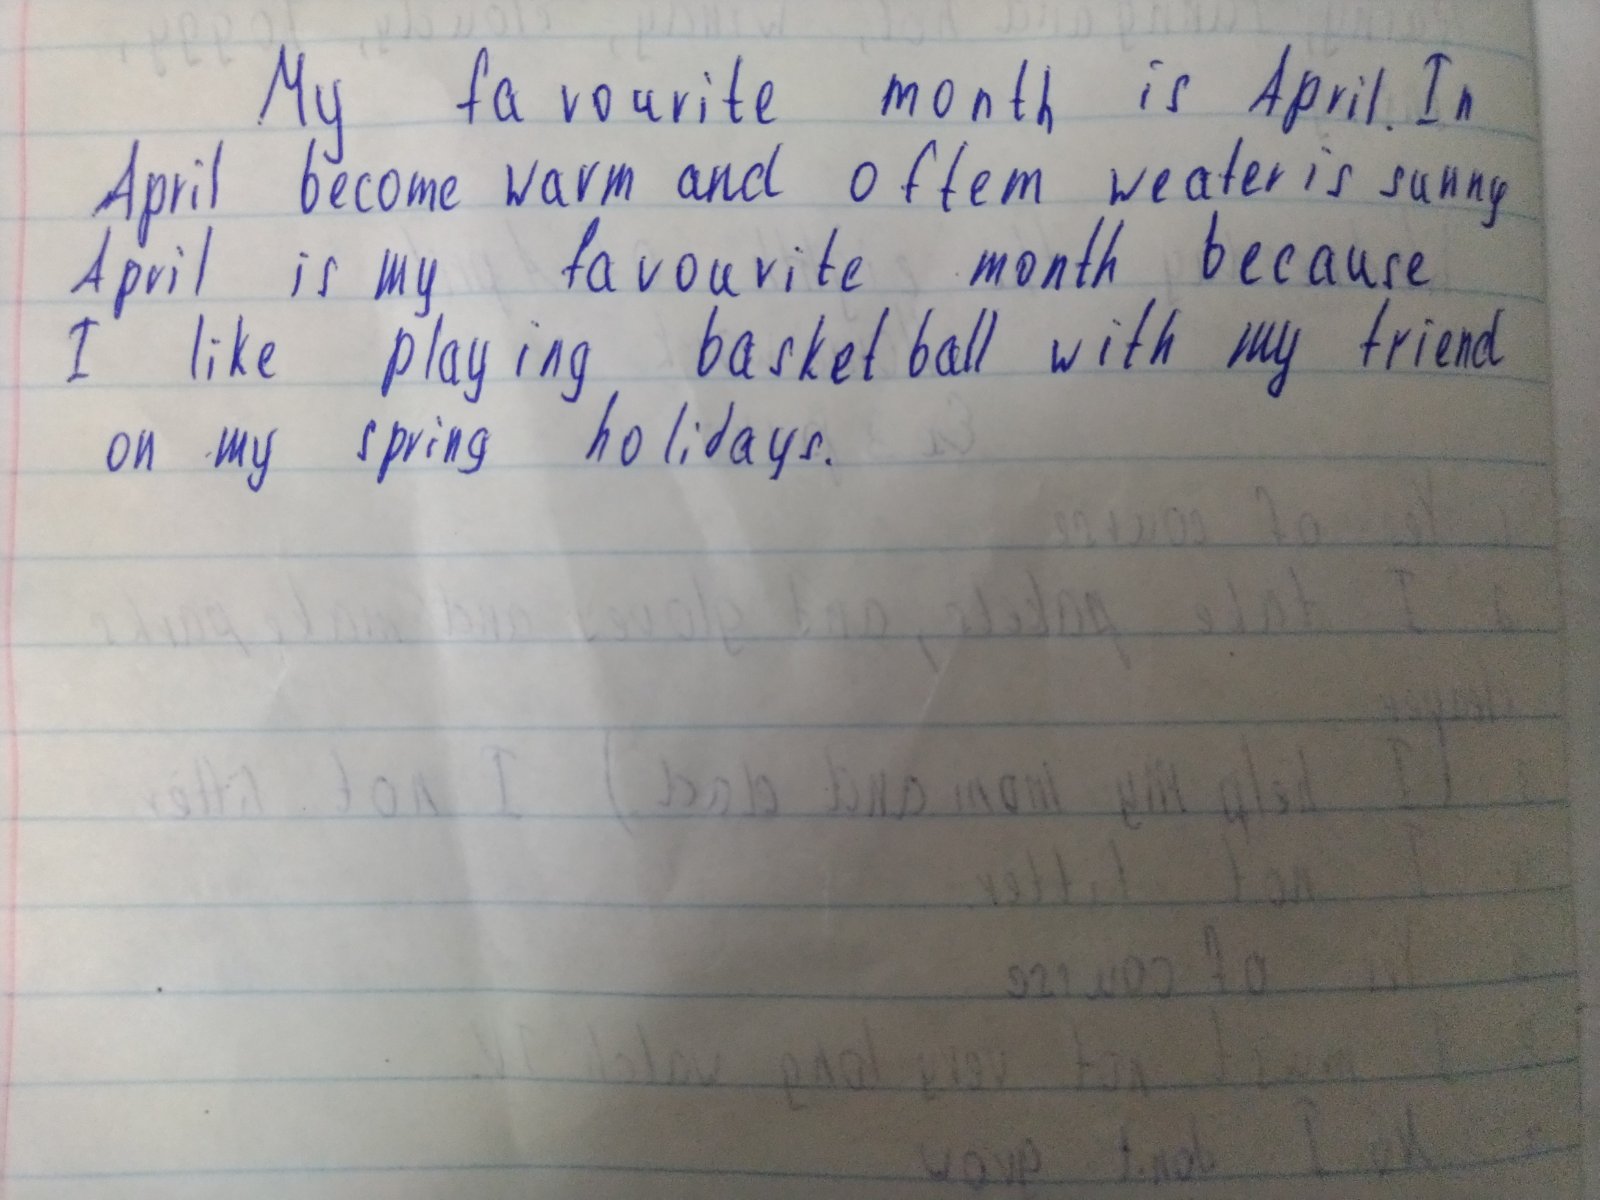 My favourite month is April. In
April become warm and oftem weater is sunny
April is my favourite month because
I like playing basketball with my friend
on my spring holidays.